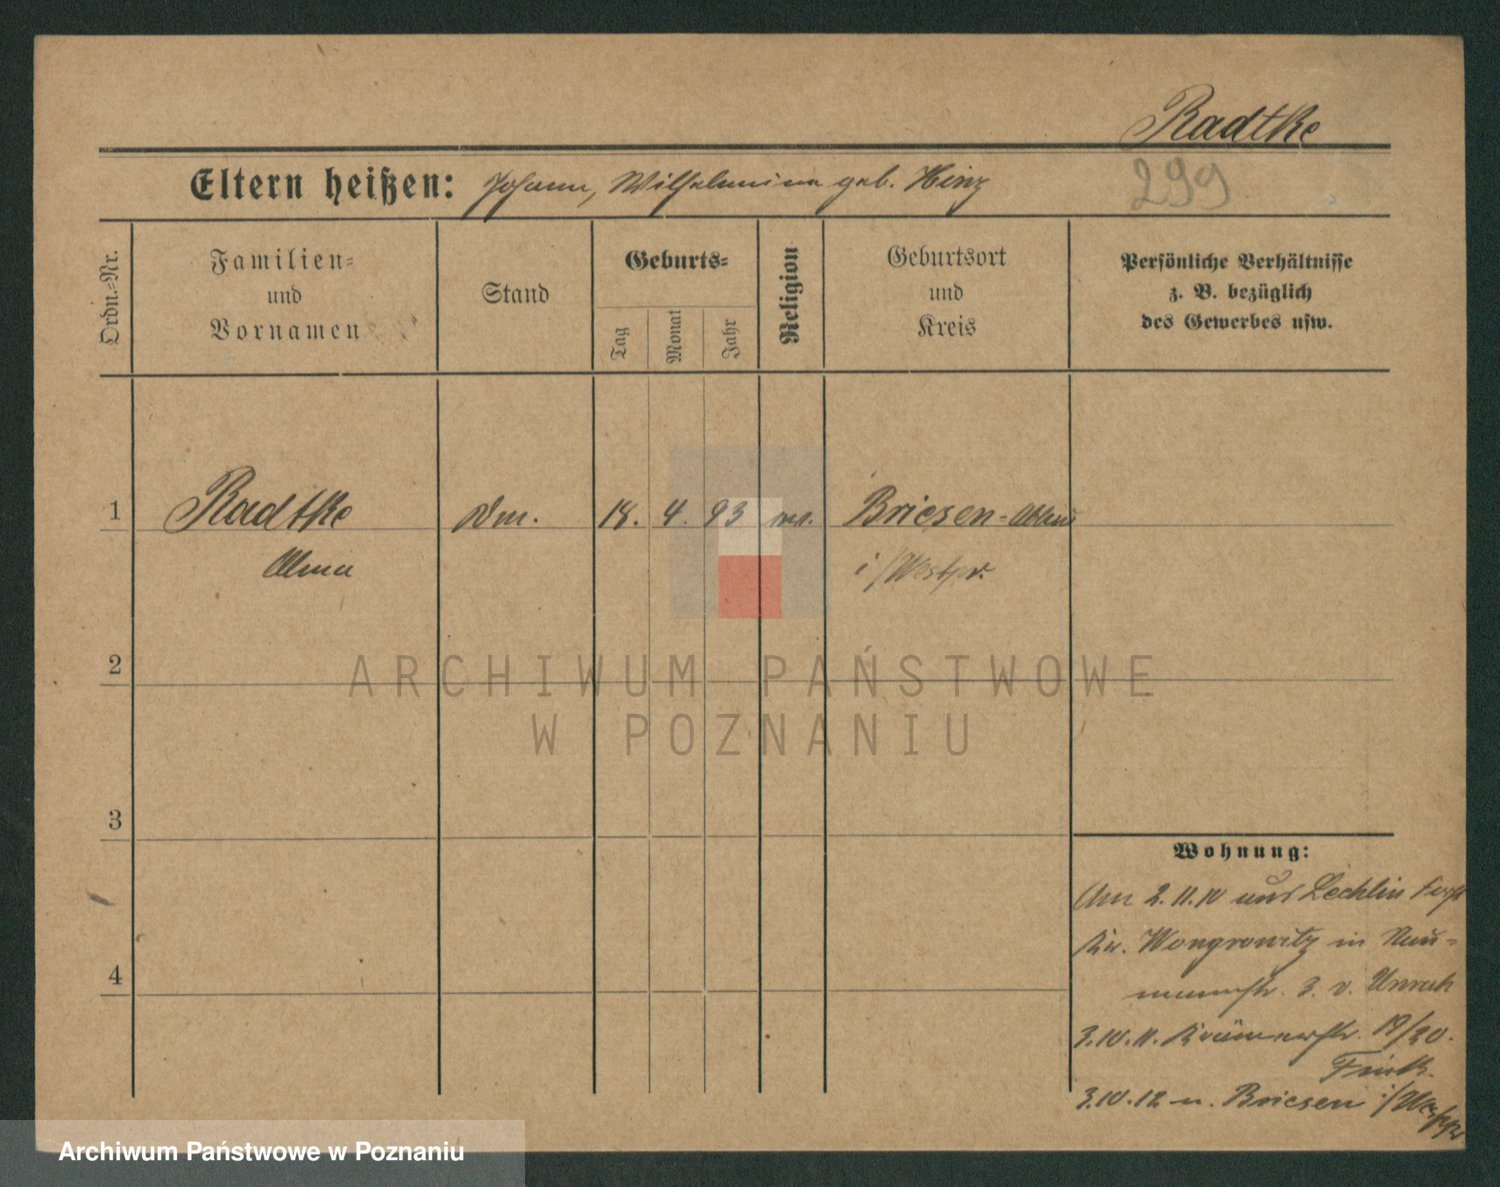 Radtke
Eltern heißen: Johann, Wilhelmine geb. Hinz
299
Ordn.-Nr.
Familien-
und
Vornamen
Stand
Geburts-
Tag
Monat
Jahr
Religion
Geburtsort
und
Kreis
Persönliche Verhältnisse
z. B. bezüglich
des Gewerbes usw.
1 Radtke 18. 4. 93 Briesen-
i/Westpr.
2
ARCHIWUM PAŃSTWOWE
W POZNANIU
3
Wohnung:
Am 2.11.10 aus Lechlin
Kr. Wongrowitz in Nau-
mannstr. 3. v. Unruh
4
3.10.11. Krämerstr. 19/20.
3.10.12 n. Briesen i/Westpr
Archiwum Państwowe w Poznaniu